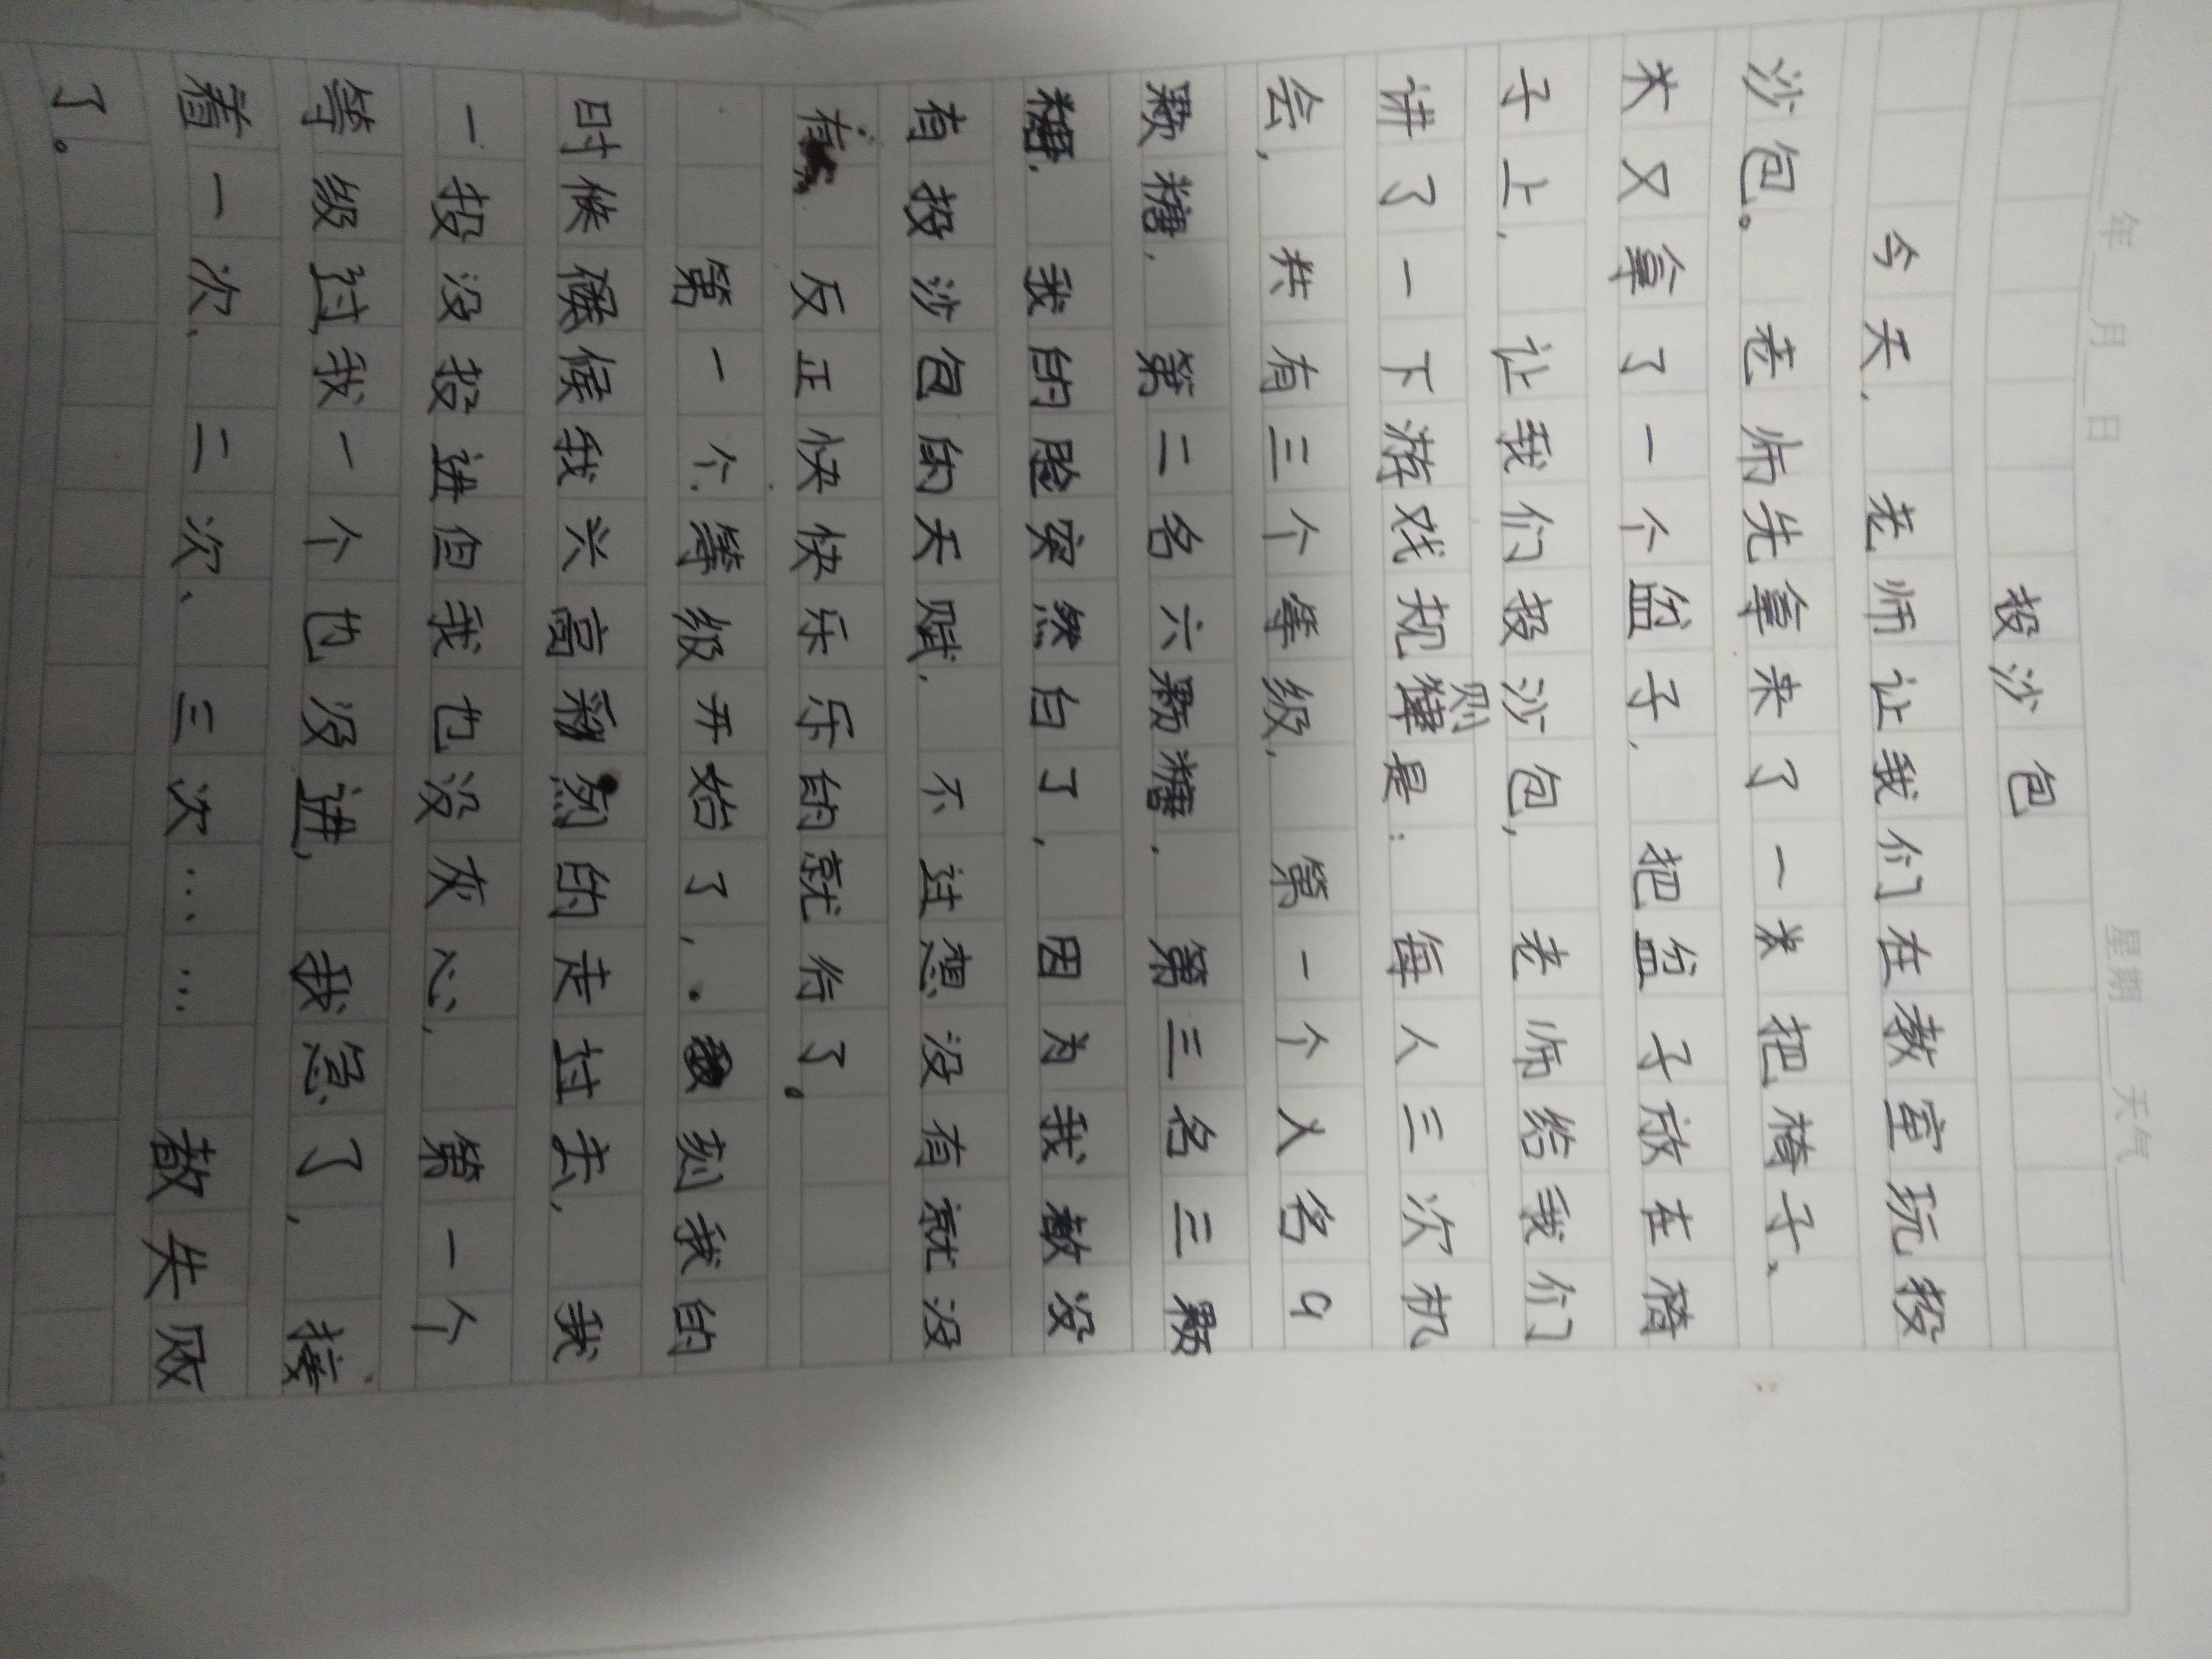 年 月 日 星期 天气
投沙包
今天，老师让我们在教室玩投
沙包。老师先拿来了一米把椅子、
米又拿了一个盆子，把盆子放在椅
子上，让我们投沙包，老师给我们
讲了一下游戏规则是：每人三次机
会，共有三个等级，第一个人名9
颗糖，第二名六颗糖，第三名三颗
糖，我的脸突然白了，因为我教没
有投沙包的天赋，不过想没有就没
有，反正快快乐乐的就行了。
第一个等级开始了，刻我的
时候候候我兴高彩烈的走过去，我
一投没投进但我也没灰心，第一个
等级过我一个也没进，我急了，接
着一次、二次、三次……都失败
了。